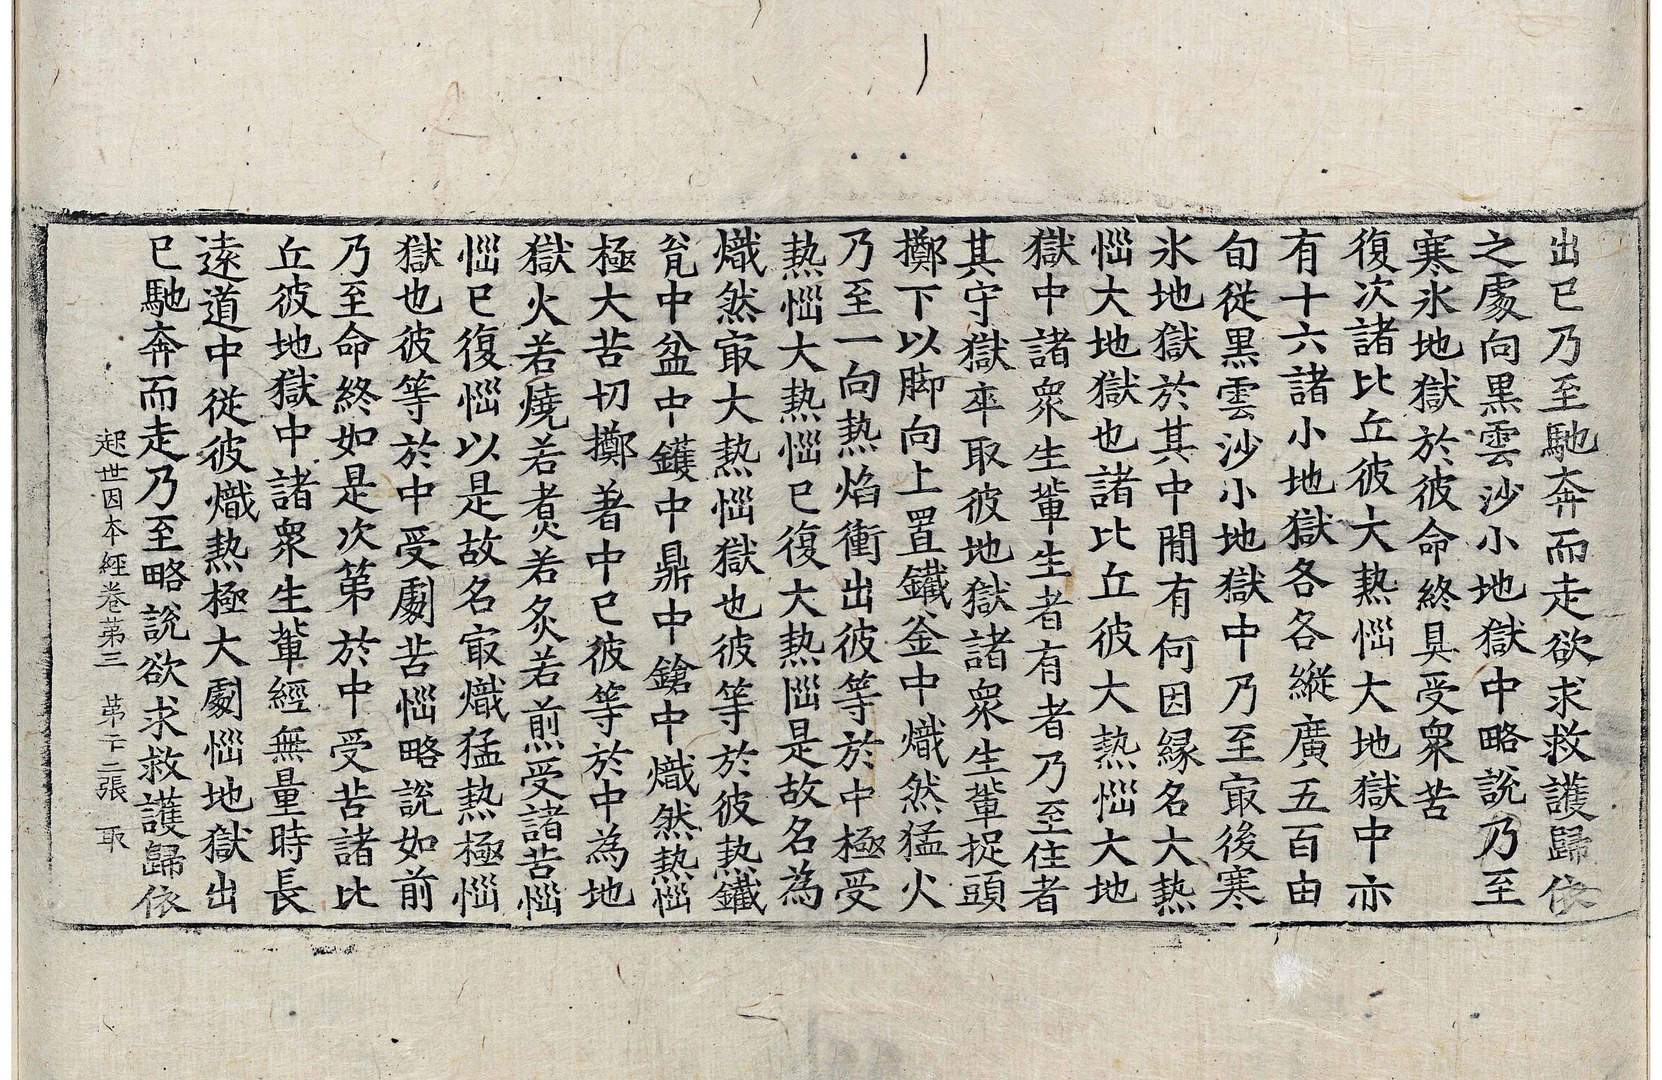 出已乃至馳奔而走欲求救護歸依
之處向黑雲沙小地獄中略說乃至
寒氷地獄於彼命終具受衆苦
復次諸比丘彼大熱惱大地獄中亦
有十六諸小地獄各各縱廣五百由
旬從黑雲沙小地獄中乃至㝡後寒
氷地獄於其中閒有何因緣名大熱
惱大地獄也諸比丘彼大熱惱大地
獄中諸衆生輩生者有者乃至住者
其守獄卒取彼地獄諸衆生輩捉頭
擲下以脚向上置鐵釜中熾然猛火
乃至一向熱焰衝出彼等於中極受
熱惱大熱惱已復大熱惱是故名為
熾然㝡大熱惱獄也彼等於彼熱鐵
瓮中盆中鑊中鼎中鎗中熾然熱惱
極大苦切擲著中已彼等於中為地
獄火若燒若煑若炙若煎受諸苦惱
惱已復惱以是故名㝡熾猛熱極惱
獄也彼等於中受劇苦惱略說如前
乃至命終如是次第於中受苦諸比
丘彼地獄中諸衆生輩經無量時長
遠道中從彼熾熱極大劇惱地獄出
已馳奔而走乃至略說欲求救護歸依
起世因本經卷第三 第二十二張 取